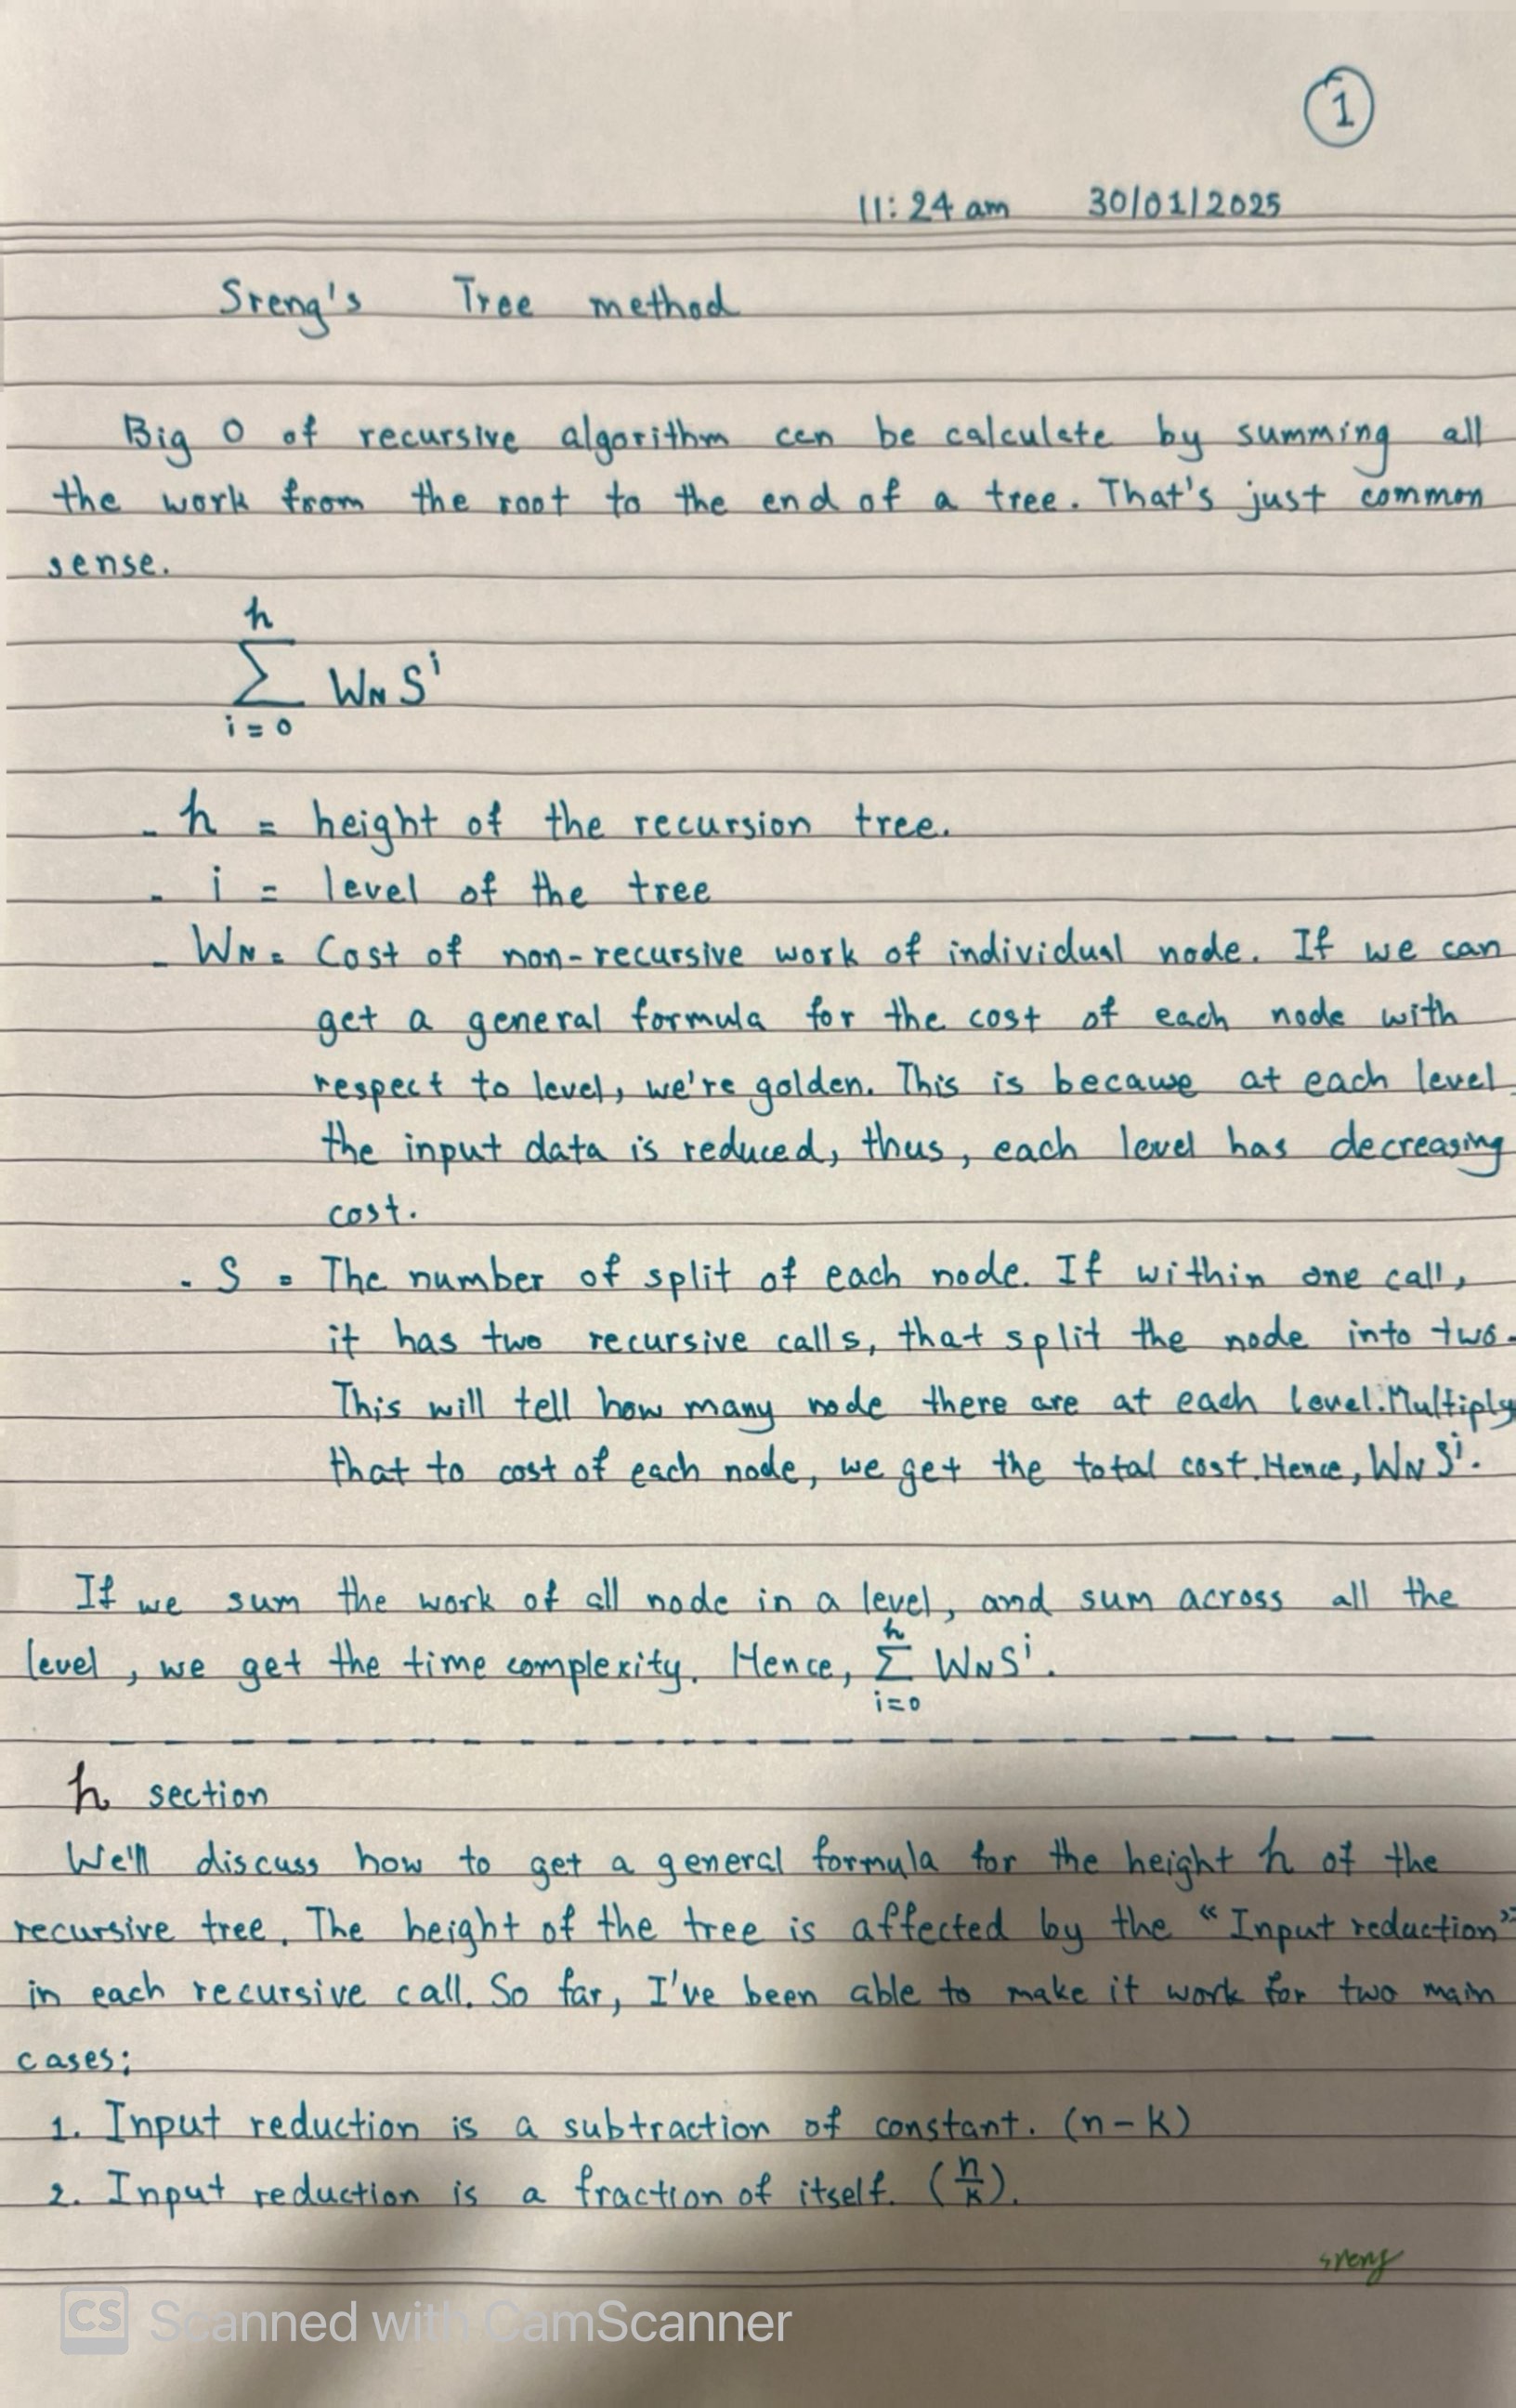 1
11:24 am 30/01/2025
Sreng's Tree method
Big O of recursive algorithm can be calculate by summing all
the work from the root to the end of a tree. That's just common
sense.
h
∑ W_N S^i
i = 0
- h = height of the recursion tree.
- i = level of the tree
- W_N = Cost of non-recursive work of individual node. If we can
get a general formula for the cost of each node with
respect to level, we're golden. This is because at each level
the input data is reduced, thus, each level has decreasing
cost.
- S = The number of split of each node. If within one call,
it has two recursive calls, that split the node into two.
This will tell how many node there are at each level. Multiply
that to cost of each node, we get the total cost. Hence, W_N S^i.
If we sum the work of all node in a level, and sum across all the
level, we get the time complexity. Hence, ∑_{i=0}^{h} W_N S^i.
h section
We'll discuss how to get a general formula for the height h of the
recursive tree. The height of the tree is affected by the "Input reduction"
in each recursive call. So far, I've been able to make it work for two main
cases:
1. Input reduction is a subtraction of constant. (n-k)
2. Input reduction is a fraction of itself. (n/k).
sreng
CS Scanned with CamScanner